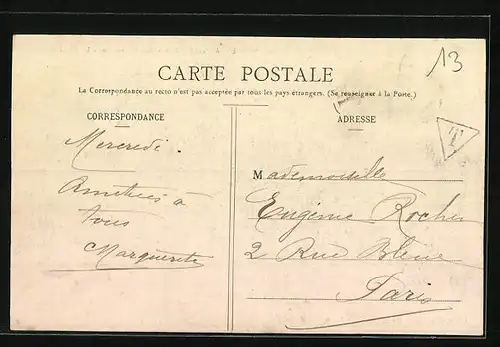 13
CARTE POSTALE
La Correspondance au recto n'est pas acceptée par tous les pays étrangers. (Se renseigner à la Poste.)
CORRESPONDANCE
Mercredi.
Amitiés à
tous
Marguerite
ADRESSE
T
Mademoiselle
Eugénie Rocher
2 Rue Bleue
Paris